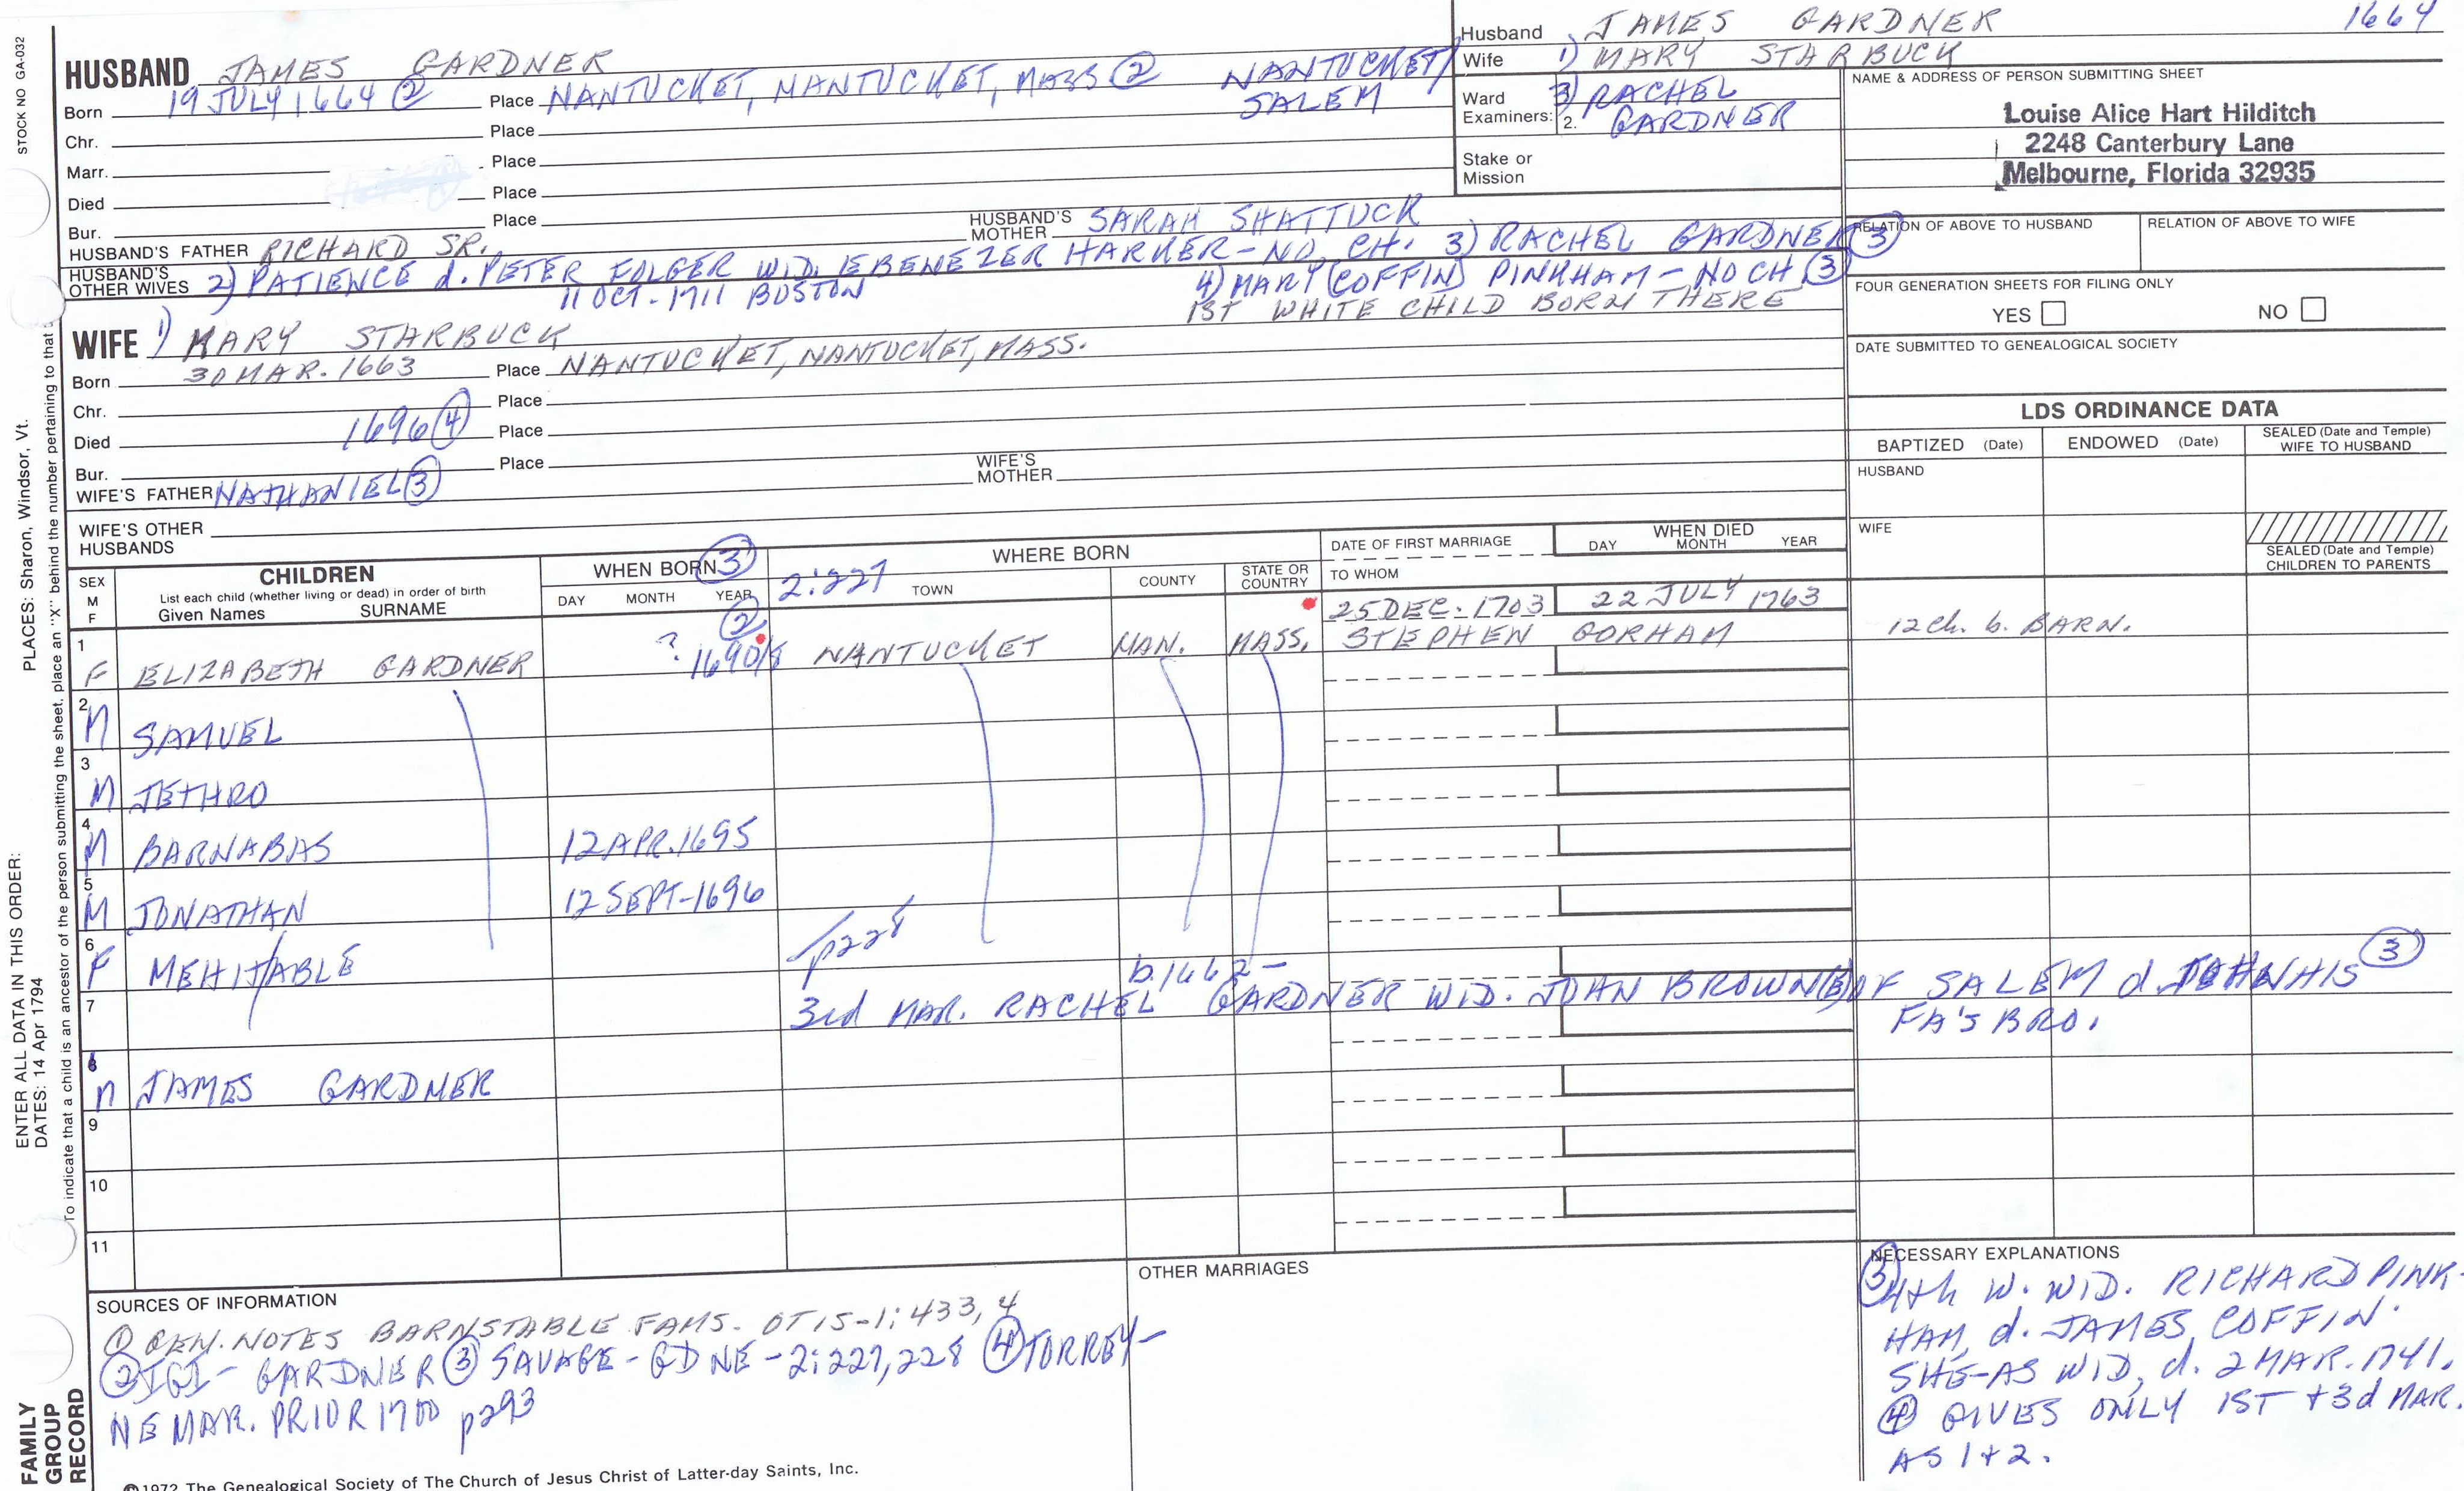 STOCK NO GA-032
PLACES: Sharon, Windsor, Vt.
ENTER ALL DATA IN THIS ORDER:
DATES: 14 Apr 1794
To indicate that a child is an ancestor of the person submitting the sheet, place an "X" behind the number pertaining to that
FAMILY GROUP RECORD
HUSBAND JAMES GARDNER
Born 19 JULY 1664 ② Place NANTUCKET, NANTUCKET, MASS ② NANTUCKET/
SALEM
Chr. Place
Marr. Place
Died Place
Bur. Place
HUSBAND'S FATHER RICHARD SR. HUSBAND'S MOTHER SARAH SHATTUCK
HUSBAND'S OTHER WIVES 2) PATIENCE d. PETER FOLGER WID. EBENEZER HARKER - NO CH. 3) RACHEL GARDNER ③
11 OCT - 1711 BOSTON 4) MARY (COFFIN) PINKHAM - NO CH ③
1ST WHITE CHILD BORN THERE
WIFE 1) MARY STARBUCK
Born 30 MAR. 1663 Place NANTUCKET, NANTUCKET, MASS.
Chr. Place
Died 1696 ④ Place
Bur. Place
WIFE'S FATHER NATHANIEL ③ WIFE'S MOTHER
WIFE'S OTHER HUSBANDS
Husband JAMES GARDNER 1664
Wife 1) MARY STARBUCK
Ward Examiners: 3) RACHEL
2. GARDNER
Stake or Mission
NAME & ADDRESS OF PERSON SUBMITTING SHEET
Louise Alice Hart Hilditch
2248 Canterbury Lane
Melbourne, Florida 32935
RELATION OF ABOVE TO HUSBAND RELATION OF ABOVE TO WIFE
FOUR GENERATION SHEETS FOR FILING ONLY
YES NO
DATE SUBMITTED TO GENEALOGICAL SOCIETY
LDS ORDINANCE DATA
BAPTIZED (Date) ENDOWED (Date) SEALED (Date and Temple) WIFE TO HUSBAND
HUSBAND
WIFE
SEALED (Date and Temple) CHILDREN TO PARENTS
SEX M F
CHILDREN
List each child (whether living or dead) in order of birth
Given Names SURNAME
WHEN BORN ③
DAY MONTH YEAR
WHERE BORN
2:227 TOWN COUNTY STATE OR COUNTRY
DATE OF FIRST MARRIAGE
TO WHOM
WHEN DIED
DAY MONTH YEAR
② 25 DEC. 1703 22 JULY 1763
1 F ELIZABETH GARDNER ? 1690/8 NANTUCKET NAN. MASS. STEPHEN GORHAM 12 ch. b. BARN.
2 M SAMUEL
3 M JETHRO
4 M BARNABAS 12 APR. 1695
5 M JONATHAN 12 SEPT - 1696
6 F MEHITABLE p228
b. 1662 -
7 3rd MAR. RACHEL GARDNER WID. JOHN BROWN(E) OF SALEM d. JOHN HIS ③
FA'S BRO.
8 M JAMES GARDNER
9
10
11
SOURCES OF INFORMATION
① GEN. NOTES BARNSTABLE FAMS. OTIS - 1:433,4
② IGI - GARDNER ③ SAVAGE - GD NE - 2:227,228 ④ TORREY -
NE MAR. PRIOR 1700 p293
OTHER MARRIAGES
NECESSARY EXPLANATIONS
③ 4th W. WID. RICHARD PINK-
HAM, d. JAMES COFFIN.
SHE - AS WID, d. 2 MAR. 1741.
④ GIVES ONLY 1ST + 3d MAR.
AS 1 + 2.
©1972 The Genealogical Society of The Church of Jesus Christ of Latter-day Saints, Inc.